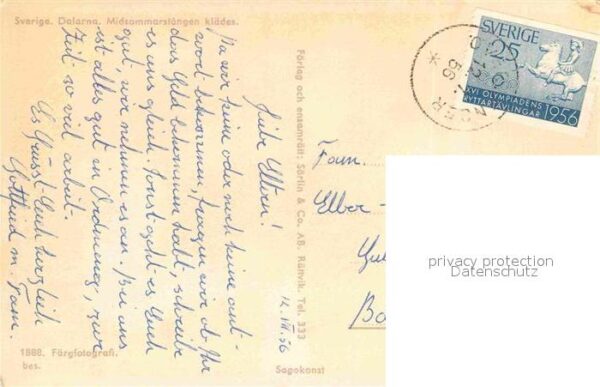 Sverige. Dalarna. Midsommarstången klädes.
Liebe Eltern!
Da wir keine oder noch keine ant-
wort bekommen, fragen wir ob Ihr
das Geld bekommen habt, schreibt
es uns gleich. Sonst geht es Euch
gut, wir nehmen es an. Bei uns
ist alles gut in Ordnung, zur
Zeit so viel arbeit.
Es Grüsst Euch herzlich
Gottfried m. Fam.
1888. Färgfotografi.
bes.
Förlag och ensamrätt: Sörlin & Co. AB. Rättvik. Tel. 333
12.VI.56
Sagokonst
SVERIGE
25
XVI OLYMPIADENS
RYTTARTÄVLINGAR
1956
Fam.
privacy protection
Datenschutz